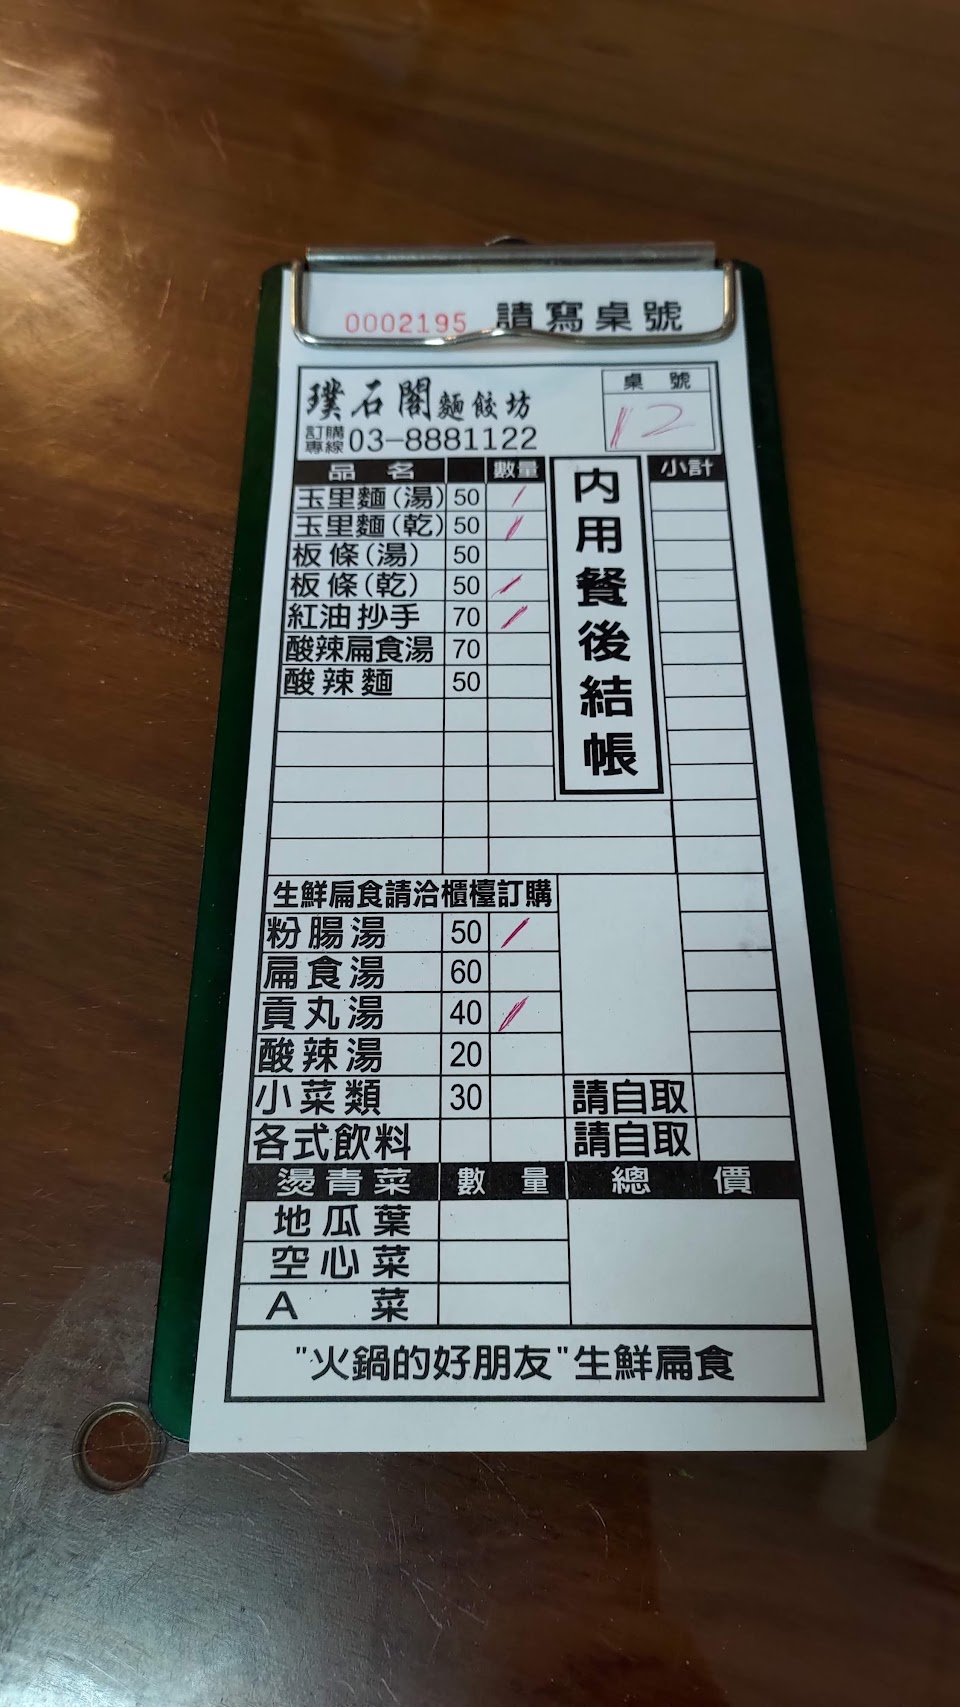 0002195 請寫桌號
璞石閣麵餃坊
桌號
訂購專線 03-8881122
12
品名 數量 小計
玉里麵(湯) 50 /
玉里麵(乾) 50 /
板條(湯) 50
板條(乾) 50 /
紅油抄手 70 /
酸辣扁食湯 70
酸辣麵 50
內用餐後結帳
生鮮扁食請洽櫃檯訂購
粉腸湯 50 /
扁食湯 60
貢丸湯 40 /
酸辣湯 20
小菜類 30 請自取
各式飲料 請自取
燙青菜 數量 總價
地瓜葉
空心菜
A菜
"火鍋的好朋友"生鮮扁食